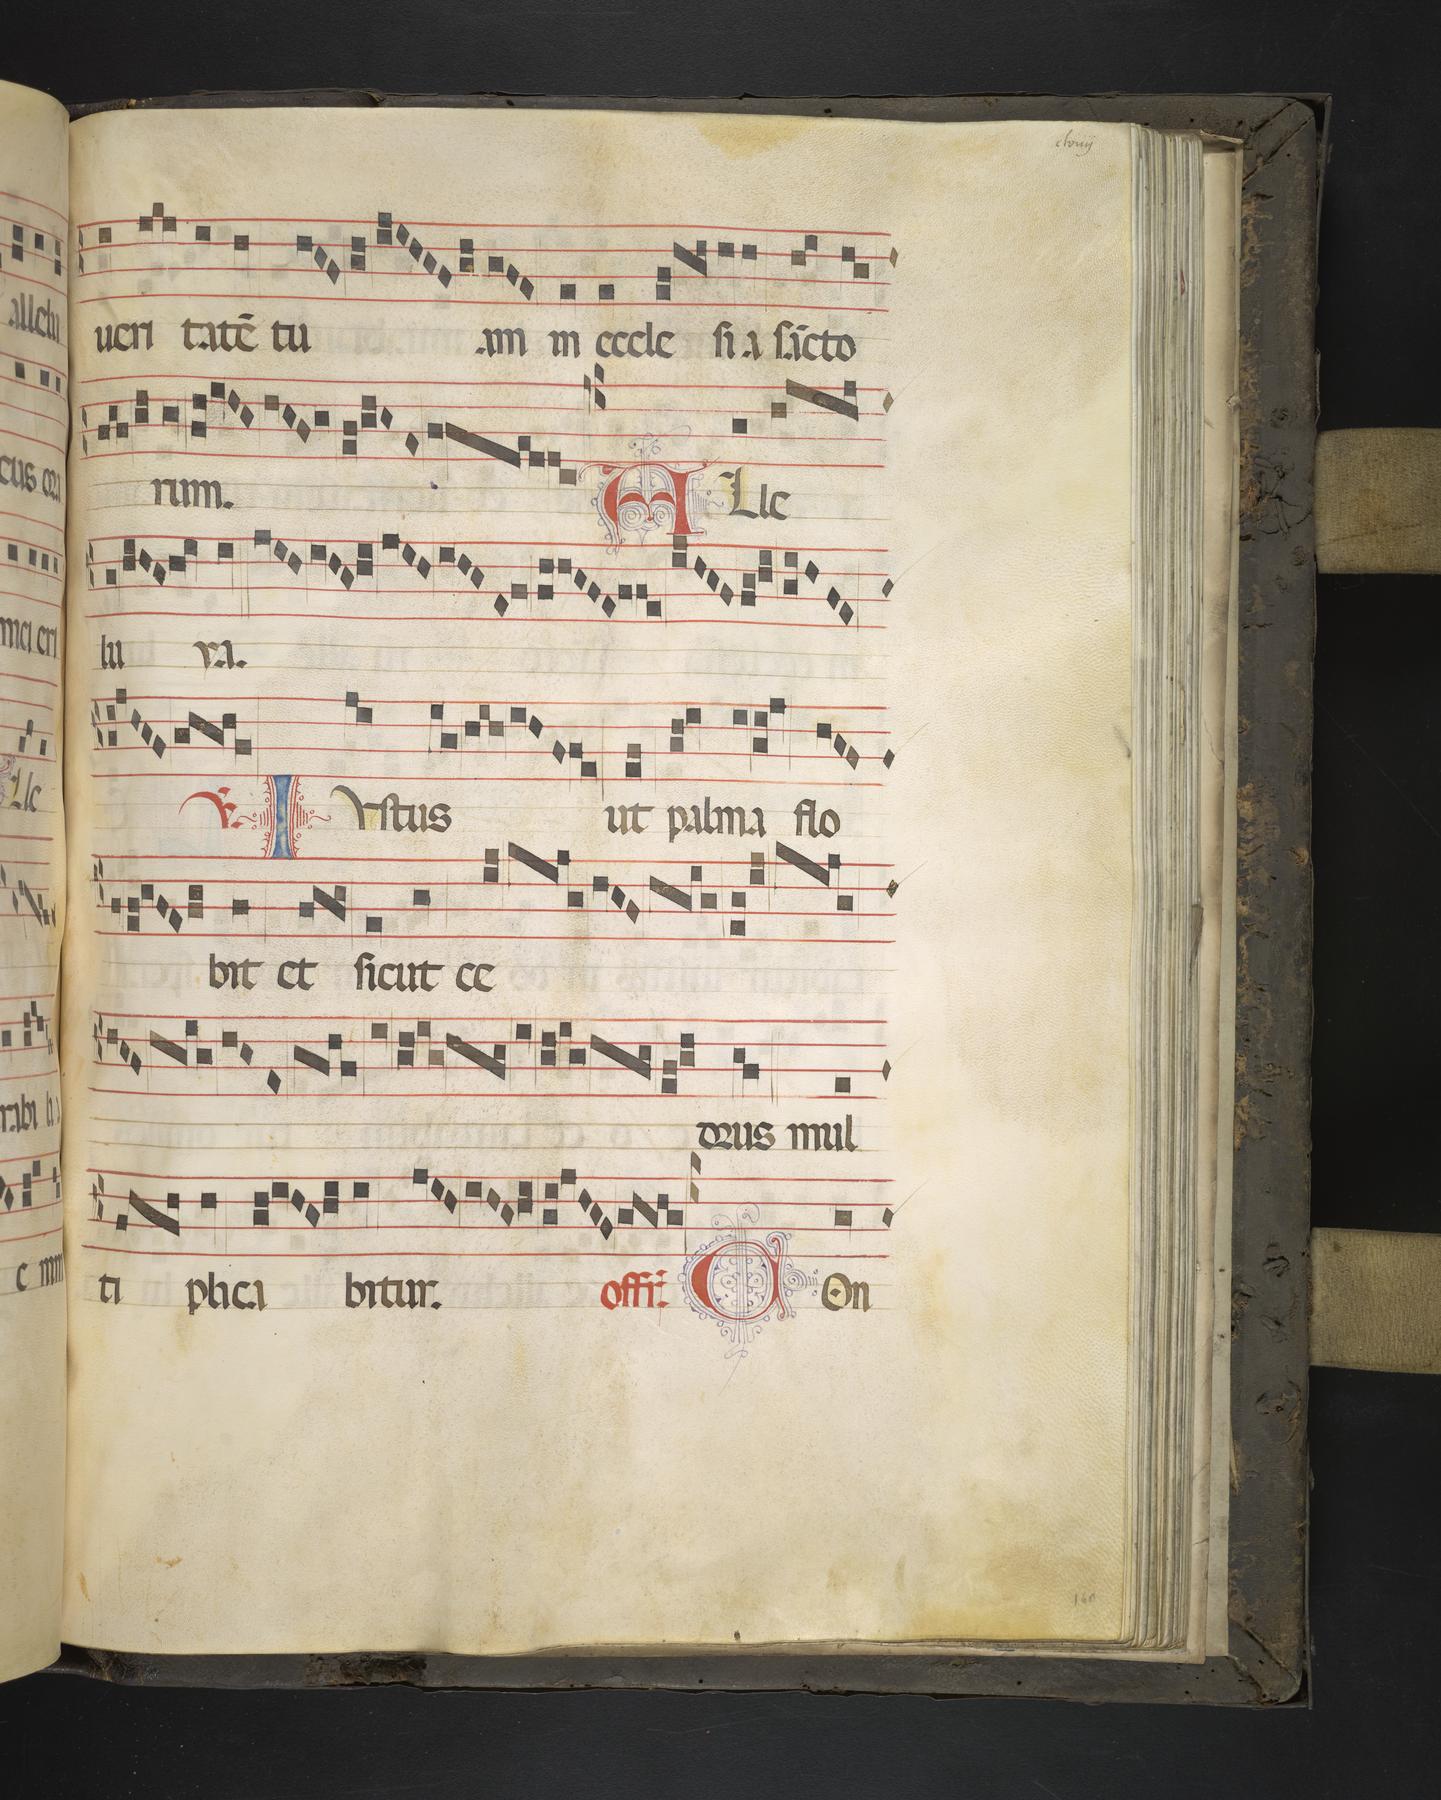 clviiij
ueri tatē tu am in eccle si a sācto
rum. A Lle
lu ya.
V. I Vstus ut palma flo
bit et sicut ce
drus mul
ti plica bitur. offr. C On
allelu
Lle
rabi